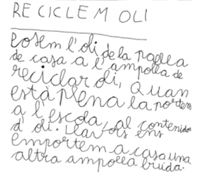 RECICLEM OLI
Posem l'oli de la paella
de casa a l'ampolla de
reciclar oli, Quan
està plena la portem
a l'escola, al contenidor
d'oli. Llavors ens
emportem a casa una
altra ampolla buida.